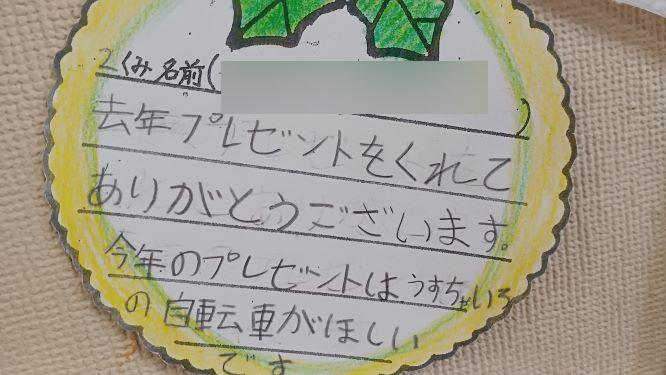 2くみ名前( )
去年プレゼントをくれて
ありがとうございます。
今年のプレゼントはうすちゃいろ
の自転車がほしい
です